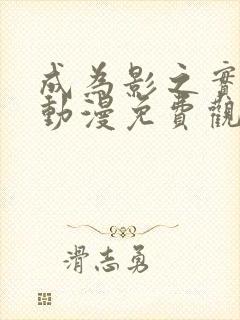 成為影之實
動漫免費觀
滑志勇